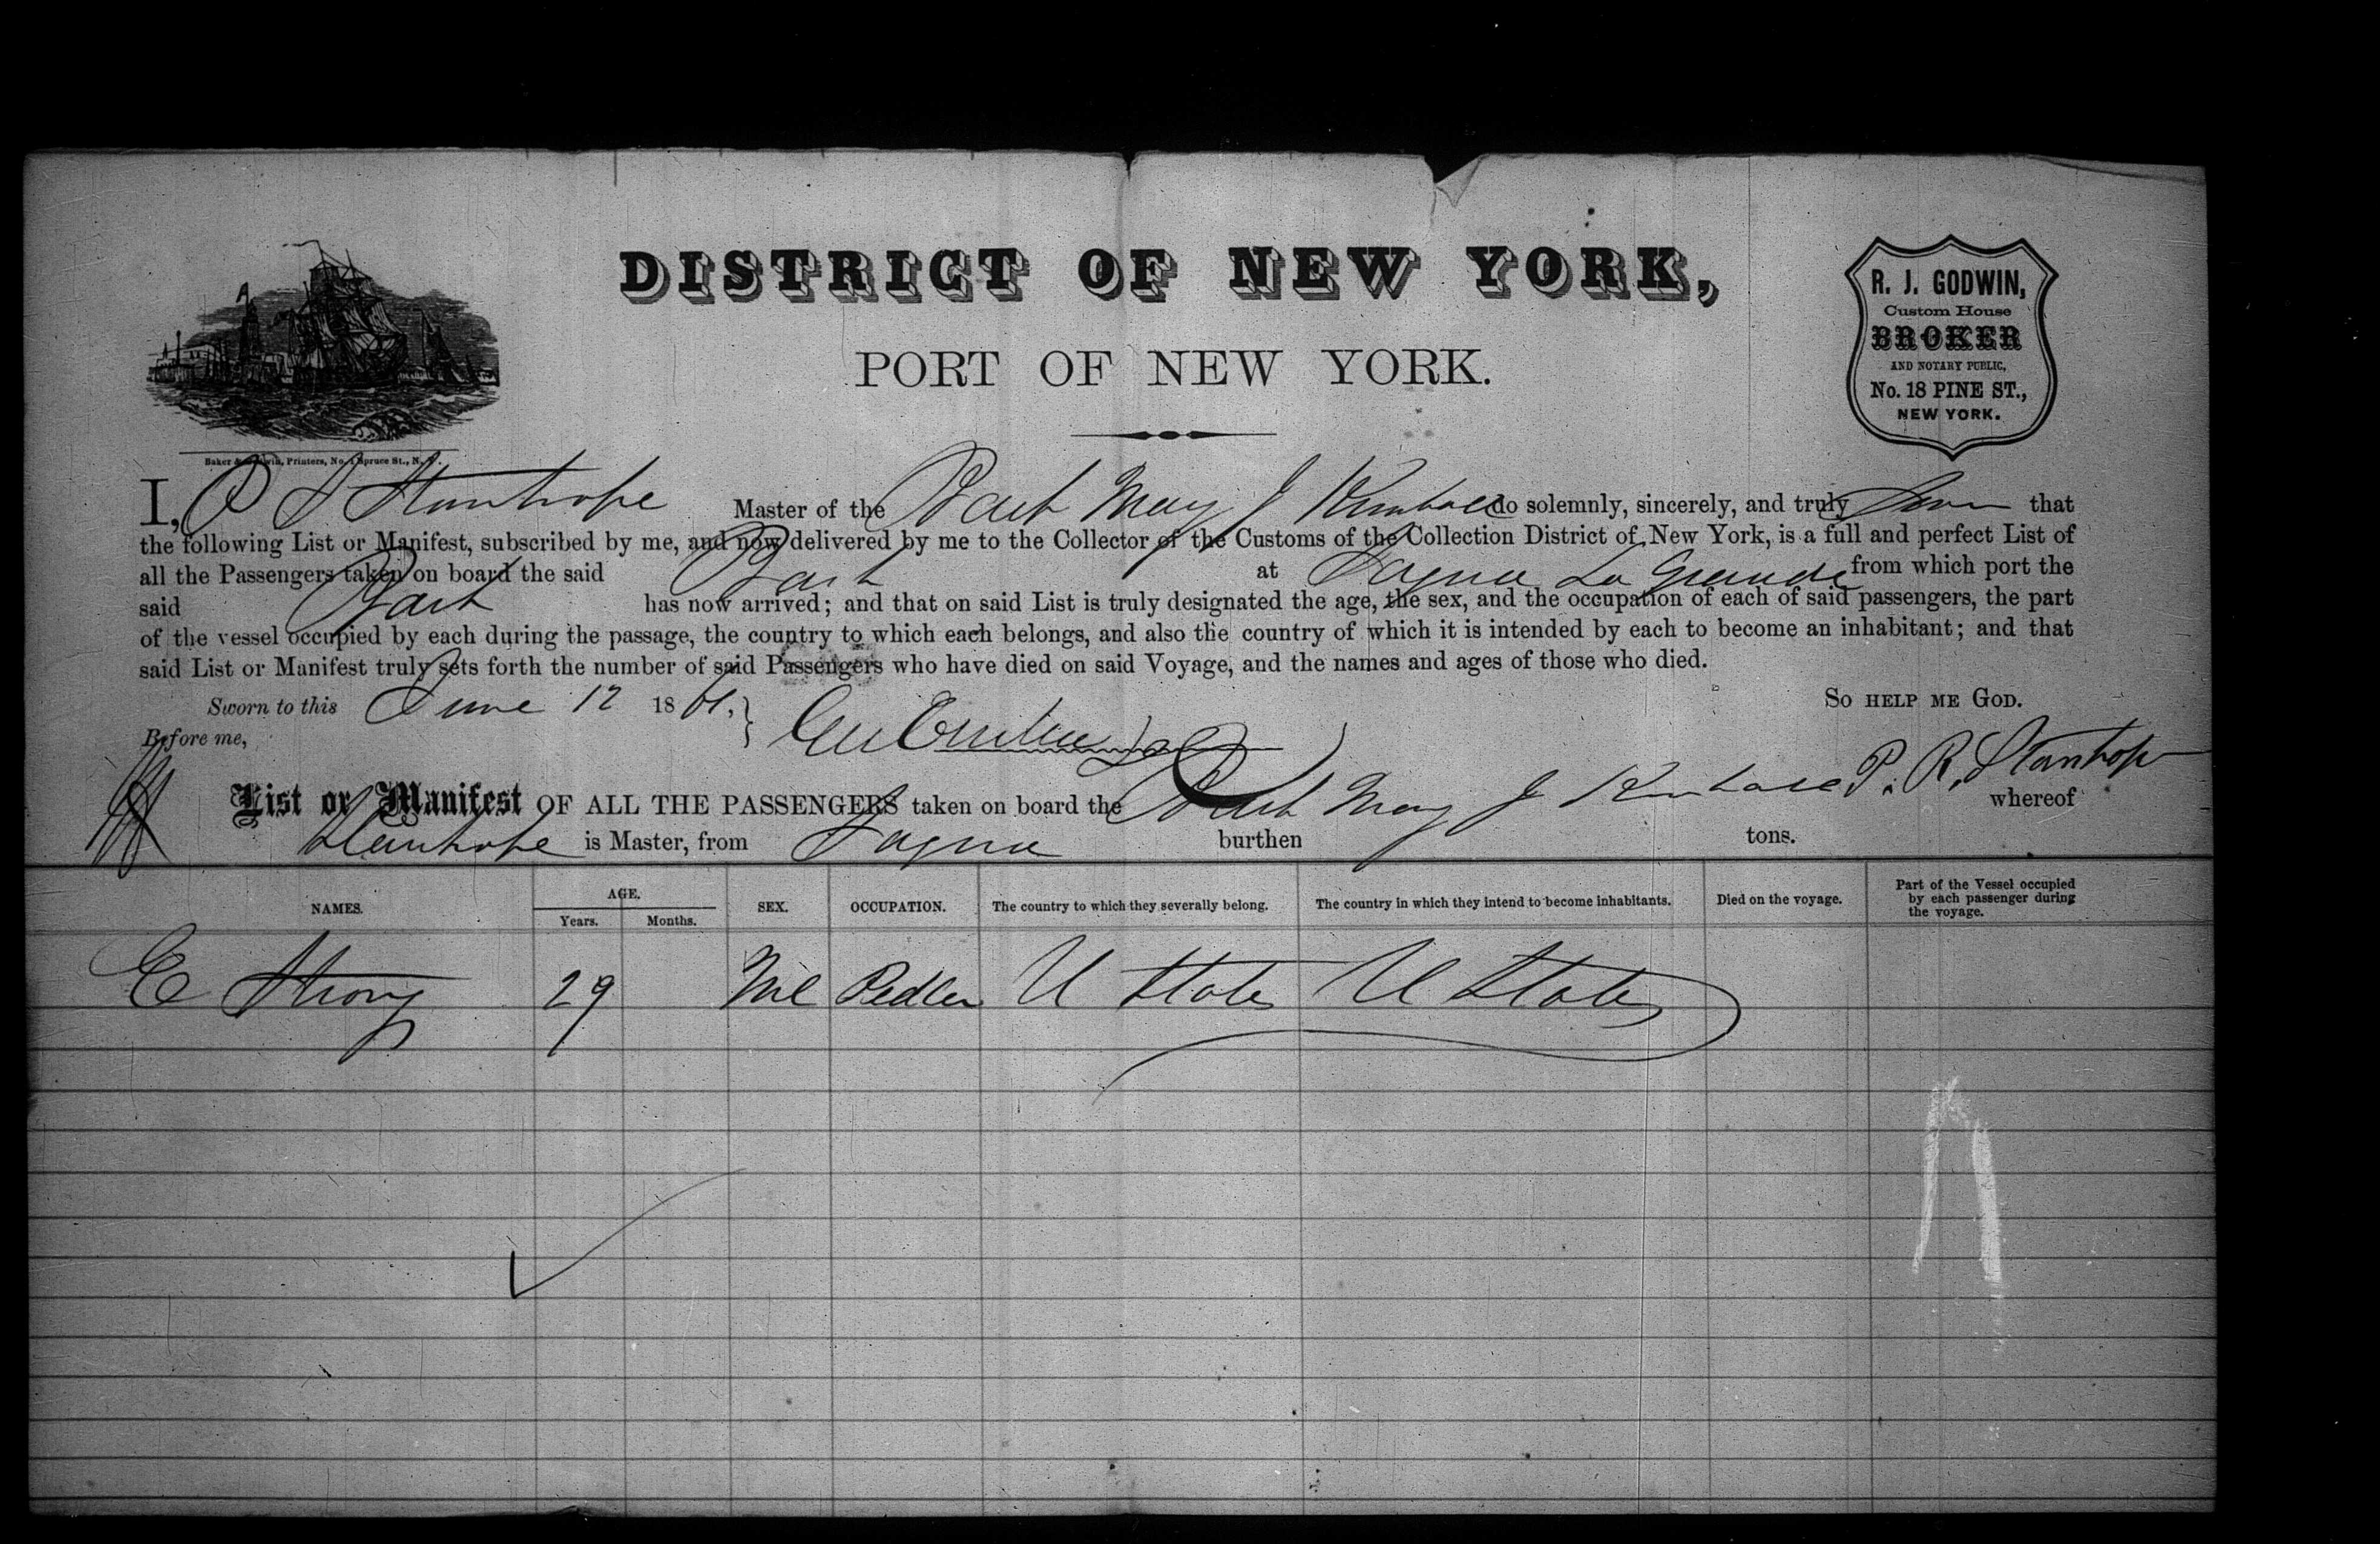 DISTRICT OF NEW YORK,
PORT OF NEW YORK.
R. J. GODWIN,
Custom House
BROKER
AND NOTARY PUBLIC,
No. 18 PINE ST.,
NEW YORK.
Baker & Godwin, Printers, No. 1 Spruce St., N. Y.
I, P Stanhope Master of the Bark May J Kimball do solemnly, sincerely, and truly that
the following List or Manifest, subscribed by me, and now delivered by me to the Collector of the Customs of the Collection District of New York, is a full and perfect List of
all the Passengers taken on board the said Bark at Sagua La Grande from which port the
said Bark has now arrived; and that on said List is truly designated the age, the sex, and the occupation of each of said passengers, the part
of the vessel occupied by each during the passage, the country to which each belongs, and also the country of which it is intended by each to become an inhabitant; and that
said List or Manifest truly sets forth the number of said Passengers who have died on said Voyage, and the names and ages of those who died.
Sworn to this June 12 1861. So help me God.
Before me,
P. R. Stanhope
List or Manifest OF ALL THE PASSENGERS taken on board the Bark May J Kimball whereof
Stanhope is Master, from Sagua burthen tons.
NAMES. AGE. Years. Months. SEX. OCCUPATION. The country to which they severally belong. The country in which they intend to become inhabitants. Died on the voyage. Part of the Vessel occupied by each passenger during the voyage.
E Strong 29 Mal Pedler U States U States